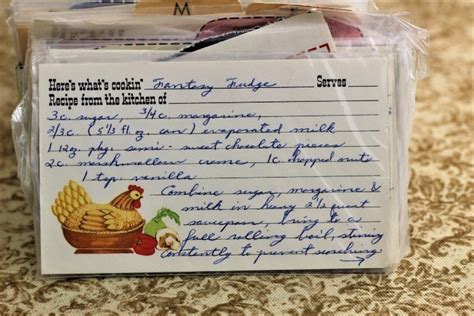 M
Here's what's cookin' Fantasy Fudge Serves
Recipe from the kitchen of
3 c. sugar, 3/4 c. margarine,
2/3 c. (5 1/3 fl. oz. can) evaporated milk
1 12 oz. pkg. semi-sweet chocolate pieces
2 c. marshmallow creme, 1 c. chopped nuts
1 tsp. vanilla
Combine sugar, margarine &
milk in heavy 2 1/2 quart
saucepan, bring to a
full rolling boil, stirring
constantly to prevent scorching. →